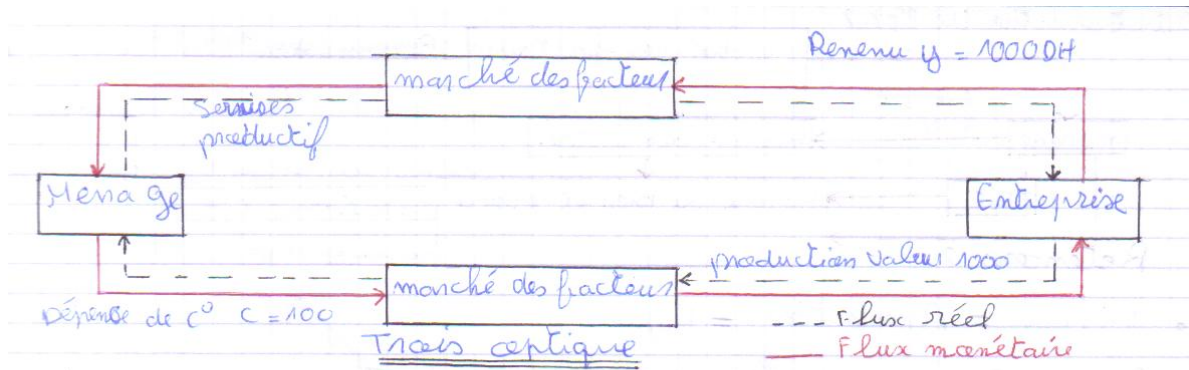 Revenu y = 1000DH
marché des facteurs
Services
productif
Menage
Entreprise
production Valeur 1000
marché des facteurs
Dépense de c° C = 100
= --- Flux réel
Trois optique
— Flux monétaire